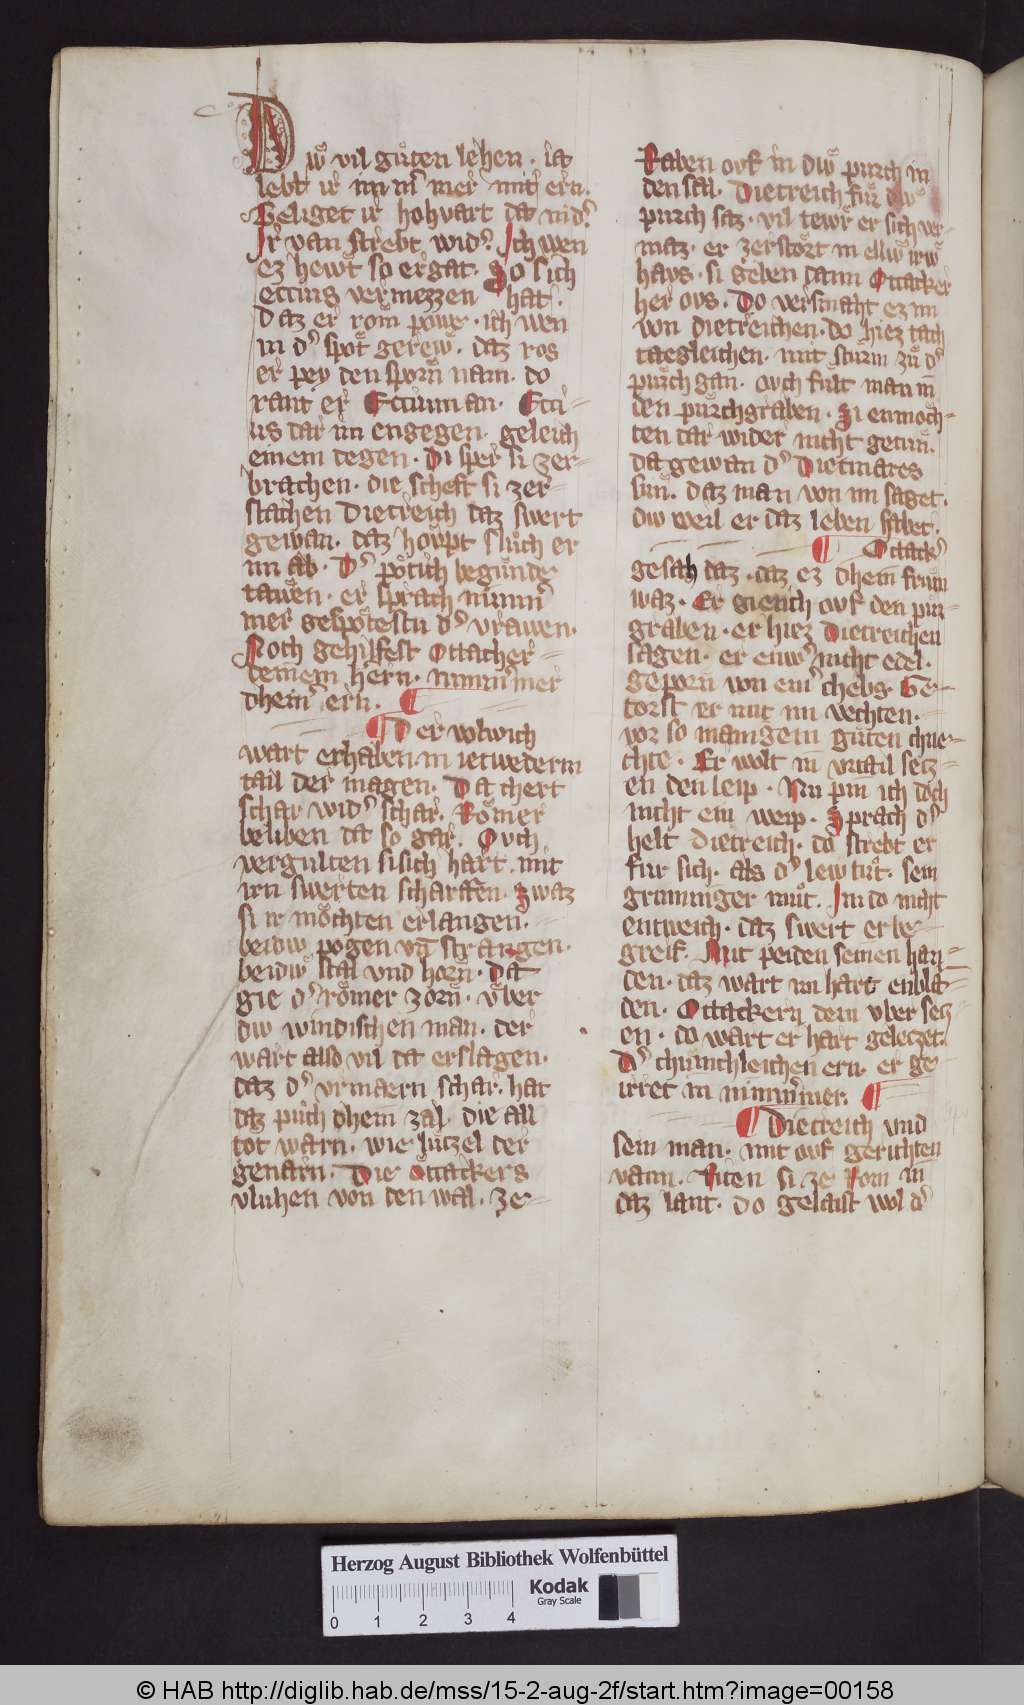 Dwͤ vil guͤten lehen · ist
lebt ir im mer mit ern.
Geliget ir hohvart da nid᷒
Ir van strebt wid᷒. Ich wen
ez hewt so ergat. So sich
eccius vermezzen hat.
Daz er rom powe · ich wen
in d᷒ spot gerew. daz ros
er pey den sporn nam. do
rant er Eccium an. Ecci-
us dar im engegen. geleich
einem degen. Di sper si zer-
brachen. die scheft si zer-
stachen Dietreich daz swert
gewan. daz howpt sluͦch er
im ab. D᷒ potich begunde
tawen. er sprach nimm᷒
mer gespotestu d᷒ vrawen.
Noch gehilfest Ottacher
deinem hern. nimm᷒ mer
dhein᷒ ern.
Der volwich
wart erhaben. in ietwederm
tail der magen. Da chert
schar wid᷒ schar. Romer
beliben da so gar. Ovch
vergulten si sich hart. mit
irn swerten scharffen. Zwaz
si ir mochten erlangen.
beidiw pogen vn̄ strangen.
beidiw stal vnd horn. da
gie d᷒ romer zorn. vber
diw windischen man. der
wart also vil da erslagen.
daz d᷒ vrmaern schar. hat
daz puͦch dhein zal. die all
tot warn. wie luͤtzel der
genarn. Die Ottackers
vluhen von den wal. ze-
Raben ovf in diw purch in
den sal. Dietreich fur diw
purch saz. vil tewr er sich ver-
maz. er zerstort in elliw irw
haus. si geben dann Ottacker
her ovs. Do versmaht ez im
von dietreichen. do hiez tach
taegleichen. mit sturm zuͦ d᷒
purch gan. ovch fult man in
den purchgraben. Si enmoch-
ten dar wider nicht getun.
Da gewan d᷒ Dietmares
sun. daz man von im saget.
diw weil er daz leben habet.
Ottack᷒
gesach daz. daz ez dhein frum
waz. Er giench ovf den pur-
graben. er hiez Dietreichen
sagen. er enw᷒ nicht edel.
geporn von ein᷒ chebs. Ge-
torst er mit im vechten.
vor so manigem guͦten chne-
chte. Er wolt in vrtail setz-
en den leip. Nu pin ich doch
nicht ein weip. Sprach d᷒
helt dietreich. do strebt er
fur sich. als d᷒ lew tuͦt. sein
grimmiger muͦt. Im do nicht
entweich. daz swert er be-
greif. Mit peiden seinen han-
den. daz wart im hart enbla-
den. Ottackern dem vber setz-
en. do wart er hart geletzet.
D᷒ chunichleichen ern. er ge
irret in nimm᷒mer.
Dietreich vnd
sein man. mit ovf gerichten
vann. Riten si ze Rom in
daz lant. do gelaist wol d᷒
Herzog August Bibliothek Wolfenbüttel
Kodak
Gray Scale
0 1 2 3 4
© HAB http://diglib.hab.de/mss/15-2-aug-2f/start.htm?image=00158